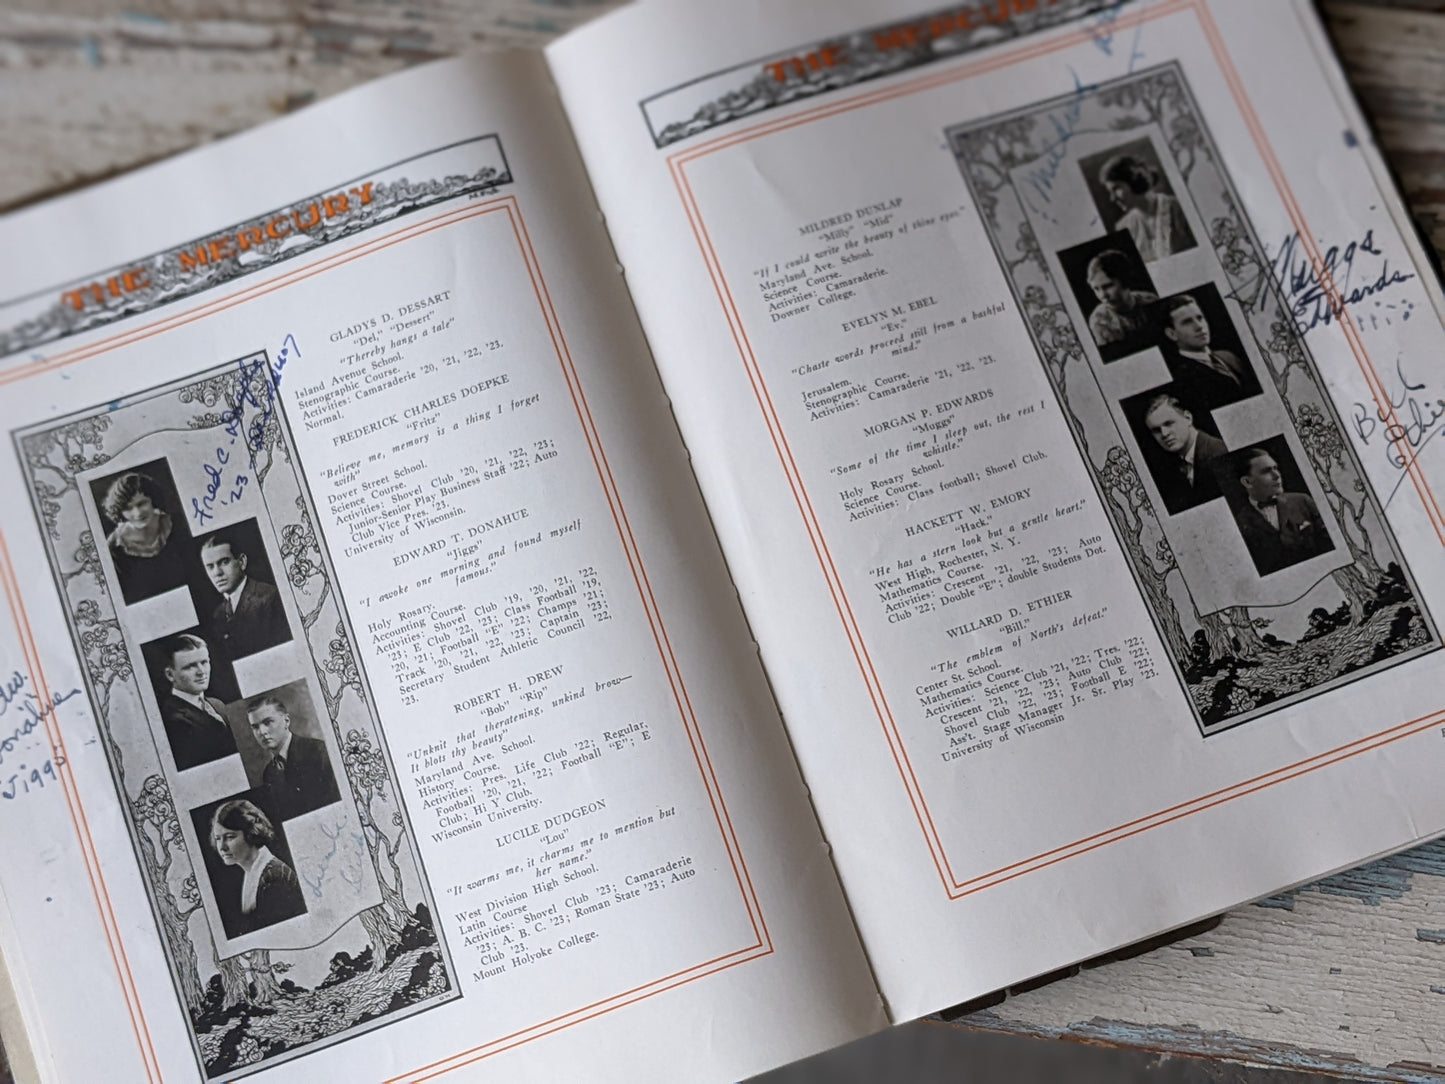 THE MERCURY
GLADYS D. DESSART
"Del," "Dessert"
"Thereby hangs a tale"
Island Avenue School.
Stenographic Course.
Activities: Camaraderie '20, '21, '22, '23.
Normal.
FREDERICK CHARLES DOEPKE
"Fritz"
"Believe me, memory is a thing I forget
with"
Dover Street School.
Science Course.
Activities: Shovel Club '20, '21, '22, '23;
Junior-Senior Play Business Staff '22; Auto
Club Vice Pres. '23.
University of Wisconsin.
EDWARD T. DONAHUE
"Jiggs"
"I awoke one morning and found myself
famous."
Holy Rosary.
Accounting Course.
Activities: Shovel Club '19, '20, '21, '22,
'23; E Club '22, '23; Class Football '19,
'20, '21; Football "E" '22; Champs '21;
Track '20, '21, '22, '23; Captain '23;
Secretary Student Athletic Council '22,
'23.
ROBERT H. DREW
"Bob" "Rip"
"Unknit that theratening, unkind brow—
It blots thy beauty"
Maryland Ave. School.
History Course.
Activities: Pres. Life Club '22; Regular,
Football '20, '21, '22; Football "E"; E
Club; Hi Y Club.
Wisconsin University.
LUCILE DUDGEON
"Lou"
"It warms me, it charms me to mention but
her name."
West Division High School.
Latin Course
Activities: Shovel Club '23; Camaraderie
'23; A. B. C. '23; Roman State '23; Auto
Club '23.
Mount Holyoke College.
Fred C.
'23
Donahue
"Jiggs"
Lucile
THE MERCURY
MILDRED DUNLAP
"Milly" "Mid"
"If I could write the beauty of thine eyes."
Maryland Ave. School.
Science Course.
Activities: Camaraderie.
Downer College.
EVELYN M. EBEL
"Ev."
"Chaste words proceed still from a bashful
mind."
Jerusalem.
Stenographic Course.
Activities: Camaraderie '21, '22, '23.
MORGAN P. EDWARDS
"Muggs"
"Some of the time I sleep out, the rest I
whistle."
Holy Rosary School.
Science Course.
Activities: Class football; Shovel Club.
HACKETT W. EMORY
"Hack."
"He has a stern look but a gentle heart."
West High, Rochester, N. Y.
Mathematics Course.
Activities: Crescent '21, '22, '23; Auto
Club '22; Double "E"; double Students Dot.
WILLARD D. ETHIER
"Bill."
"The emblem of North's defeat."
Center St. School.
Mathematics Course.
Activities: Science Club '21, '22; Tres. '22;
Crescent '21, '22, '23; Auto Club '22;
Shovel Club '22, '23; Football E '22;
Ass't. Stage Manager Jr. Sr. Play '23.
University of Wisconsin
Mildred
Muggs
Edwards
Bill
Ethier